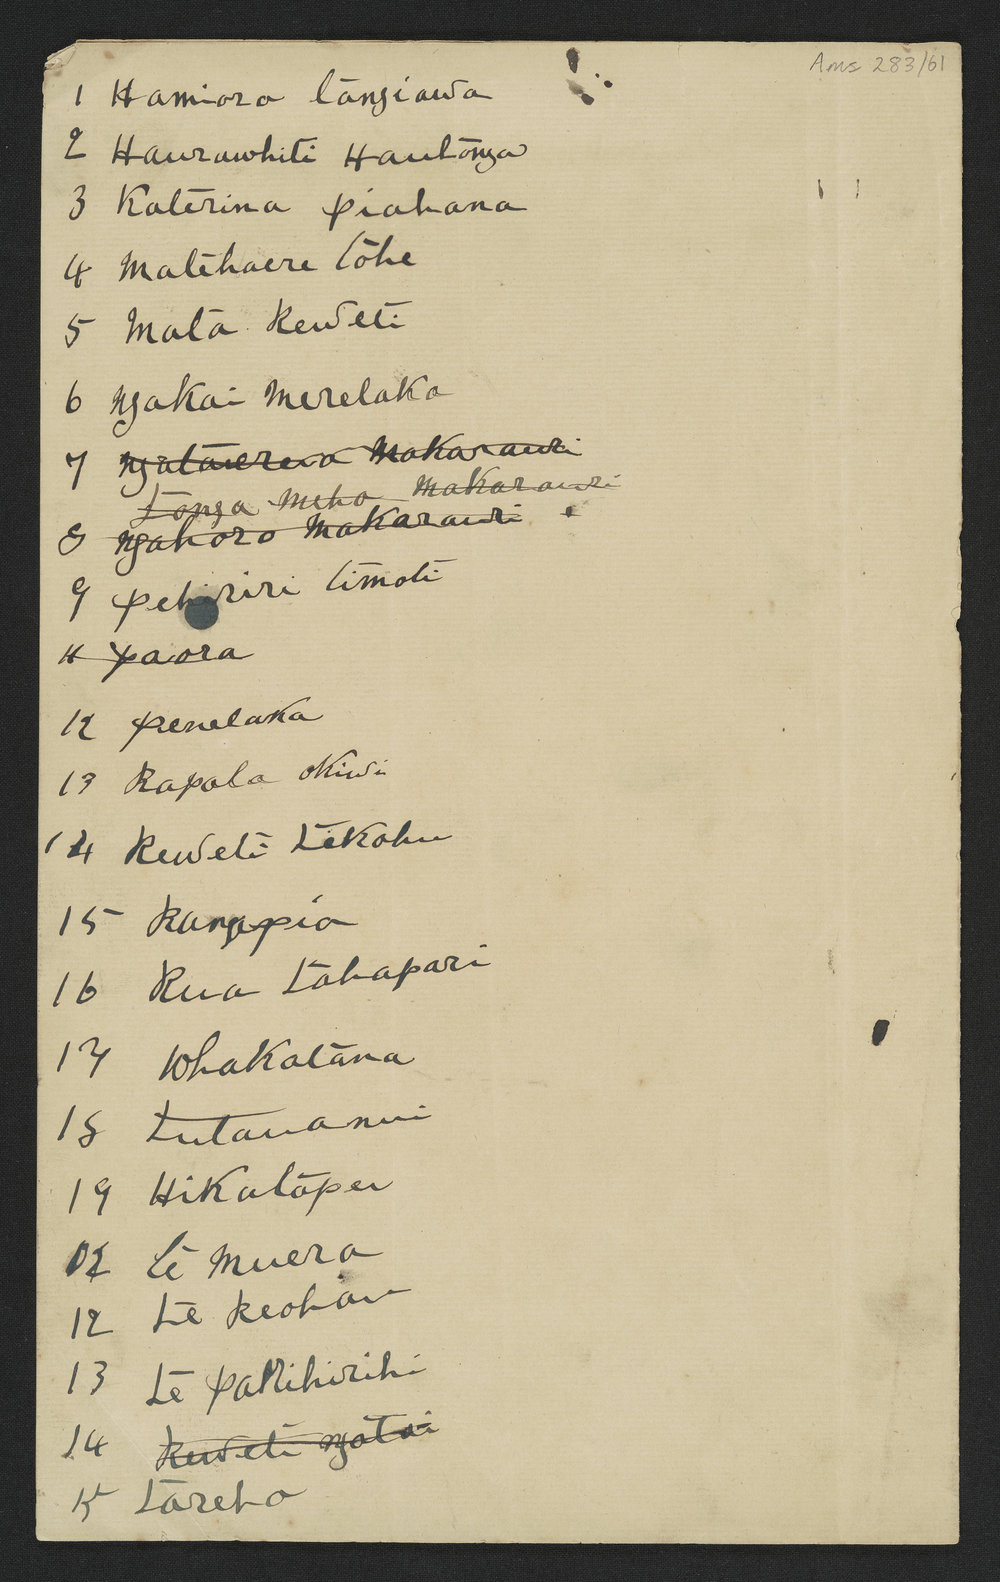 Ams 283/61
1 Hamiora Tangiawa
2 Haurawhiti Hautonga
3 Katerina Piahana
4 Matehaere Tohe
5 Mata Reweti
6 Ngakai Meretaka
7 Ngataierua Makarauri
Tonga Meha Makarauri
8 Ngahoro Makarauri
9 Pehiriri Timoti
11 Paora
12 Penetaka
13 Rapata Okiwi
14 Reweti Tekohu
15 Rangipia
16 Rua Tahapari
17 Whakatana
18 Tutauanui
19 Hikatapeu
Te Muera
12 Te Keohau
13 Te Patihirihi
14 Reweti Ngatai
15 Tareha